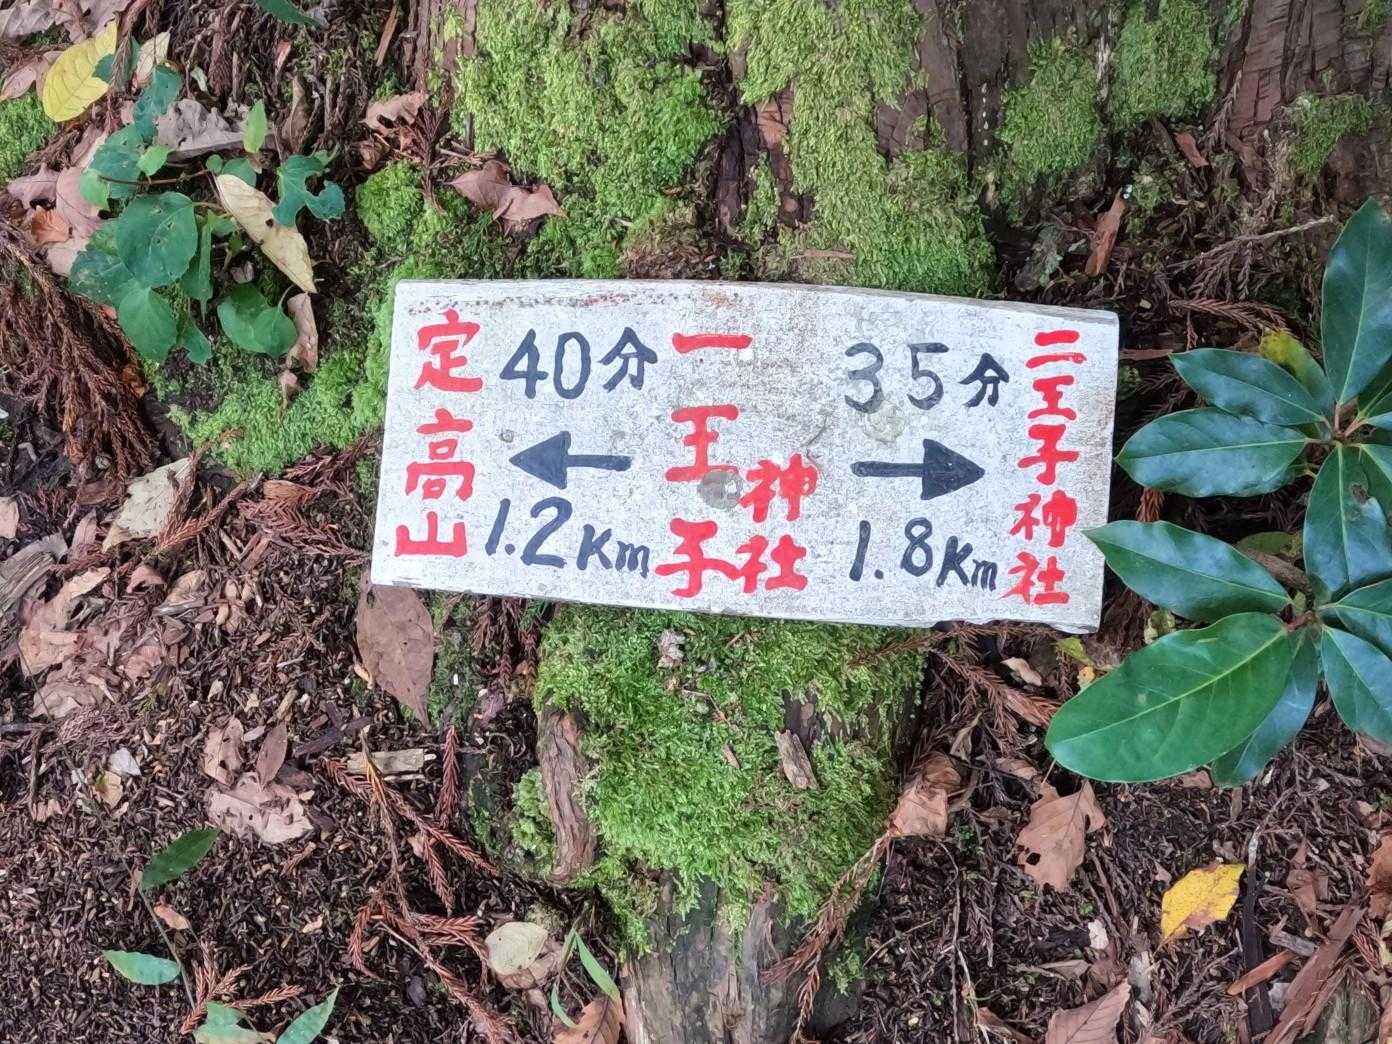 定高山
40分
1.2Km
一王子神社
35分
1.8Km
二王子神社